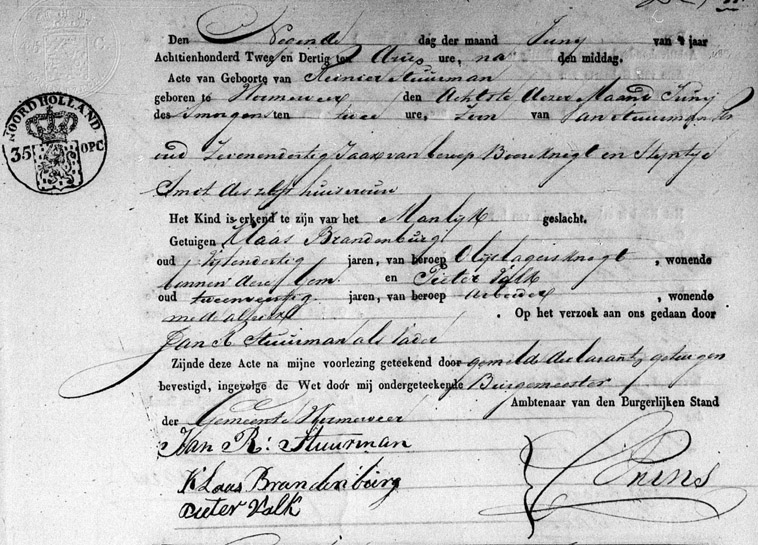 Den Negende dag der maand Juny van 't jaar
Achttienhonderd Twee en Dertig ten drie ure, na den middag.
Acte van Geboorte van Reinier Stuurman
geboren te Wormerveer den Achtste dezer Maand Junij
des Smorgens ten twee ure, Zoon van Jan Stuurman
NOORD HOLLAND
35 OPC
oud Zevenendertig Jaar van beroep Boereknegt en Stijntje
Smit deszelfs huisvrouw
Het Kind is erkend te zijn van het Manlijk geslacht.
Getuigen Klaas Brandenburg
oud Vijfendertig jaren, van beroep Olijslagersknegt, wonende
binnen deze Gem: en Pieter Valk
oud jaren, van beroep arbeider, wonende
mede alhier. Op het verzoek aan ons gedaan door
Jan R Stuurman als Vader
Zijnde deze Acte na mijne voorlezing geteekend door gemelde declarant, getuigen
bevestigd, ingevolge de Wet door mij ondergeteekende Burgemeester
Ambtenaar van den Burgerlijken Stand
der Gemeente Wormerveer
Jan R: Stuurman
Klaas Brandenburg
Pieter Valk